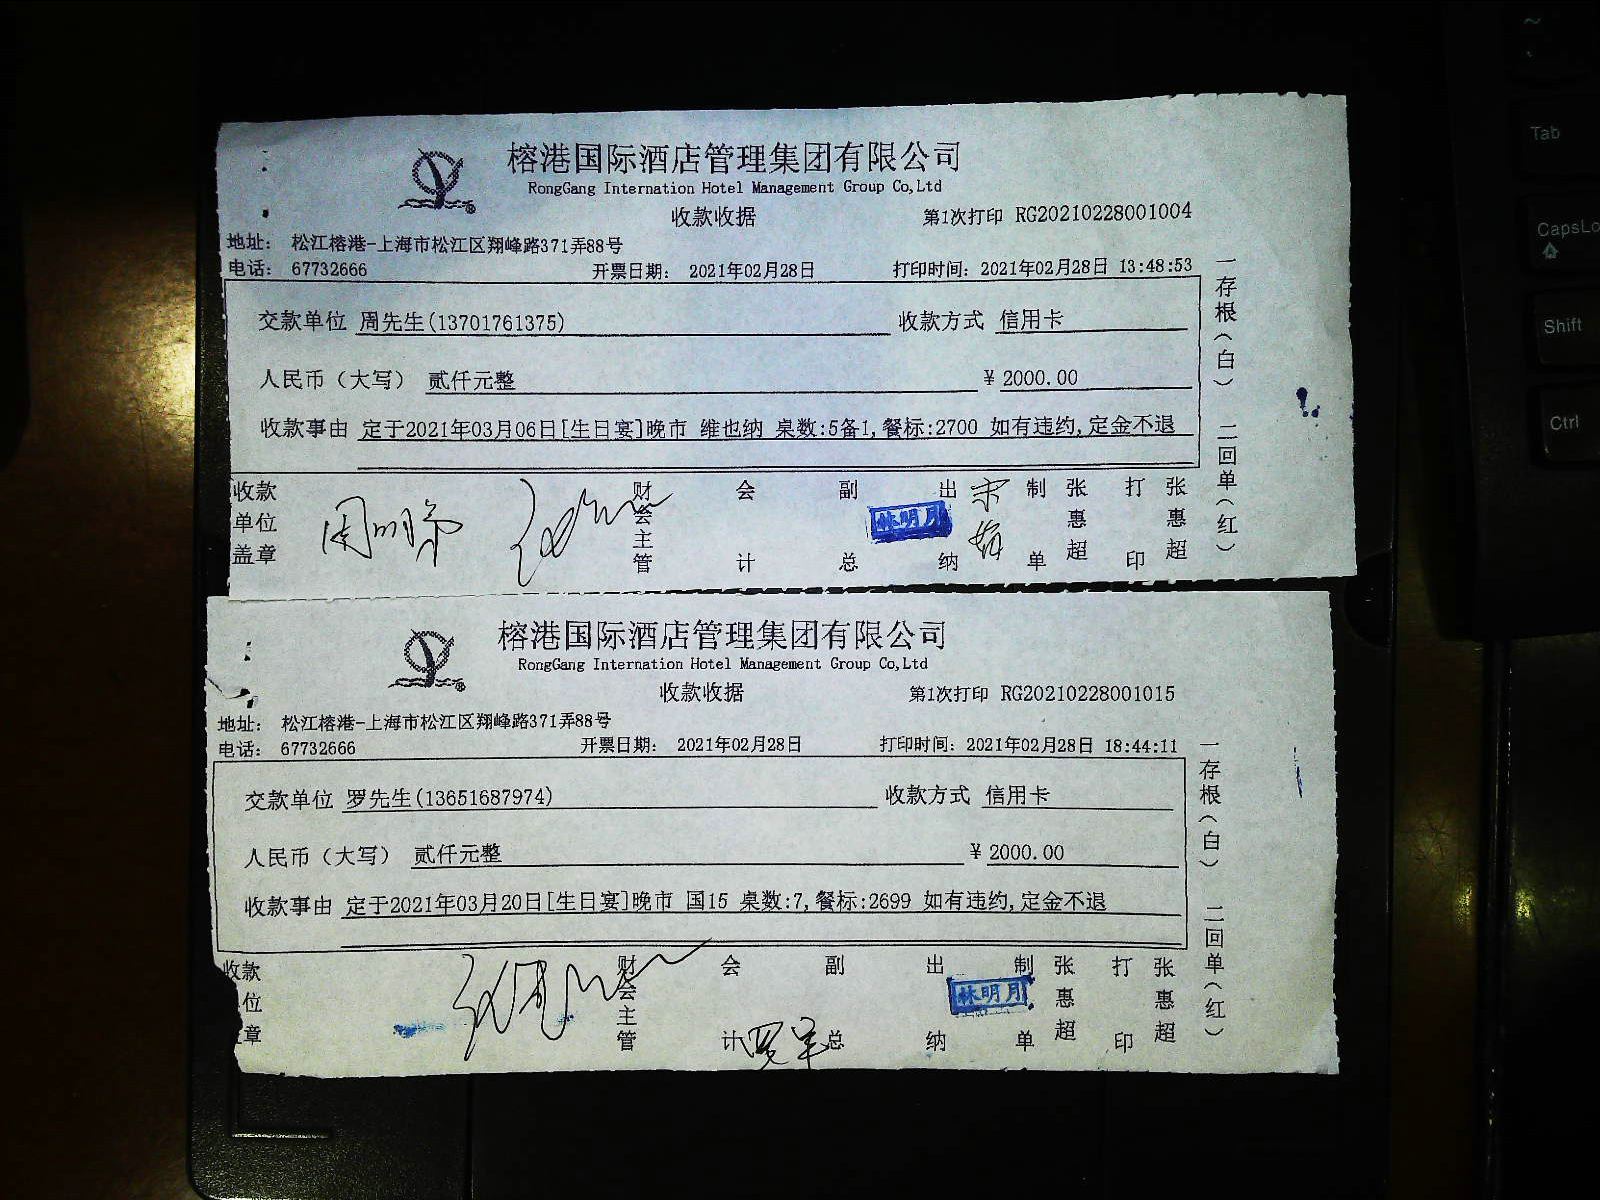 榕港国际酒店管理集团有限公司
RongGang Internation Hotel Management Group Co,Ltd
收款收据 第1次打印 RG20210228001004
地址: 松江榕港-上海市松江区翔峰路371弄88号
电话: 67732666 开票日期: 2021年02月28日 打印时间: 2021年02月28日 13:48:53
交款单位 周先生(13701761375) 收款方式 信用卡
人民币(大写) 贰仟元整 ¥ 2000.00
收款事由 定于2021年03月06日[生日宴]晚市 维也纳 桌数:5备1,餐标:2700 如有违约,定金不退
收款单位盖章 财会主管 会计 副总 林明月 出纳 制单 张惠超 打印 张惠超
一存根(白) 二回单(红)
榕港国际酒店管理集团有限公司
RongGang Internation Hotel Management Group Co,Ltd
收款收据 第1次打印 RG20210228001015
地址: 松江榕港-上海市松江区翔峰路371弄88号
电话: 67732666 开票日期: 2021年02月28日 打印时间: 2021年02月28日 18:44:11
交款单位 罗先生(13651687974) 收款方式 信用卡
人民币(大写) 贰仟元整 ¥ 2000.00
收款事由 定于2021年03月20日[生日宴]晚市 国15 桌数:7,餐标:2699 如有违约,定金不退
收款位章 财会主管 会计 副总 出纳 林明月 制单 张惠超 打印 张惠超
一存根(白) 二回单(红)
Tab
Shift
Ctrl